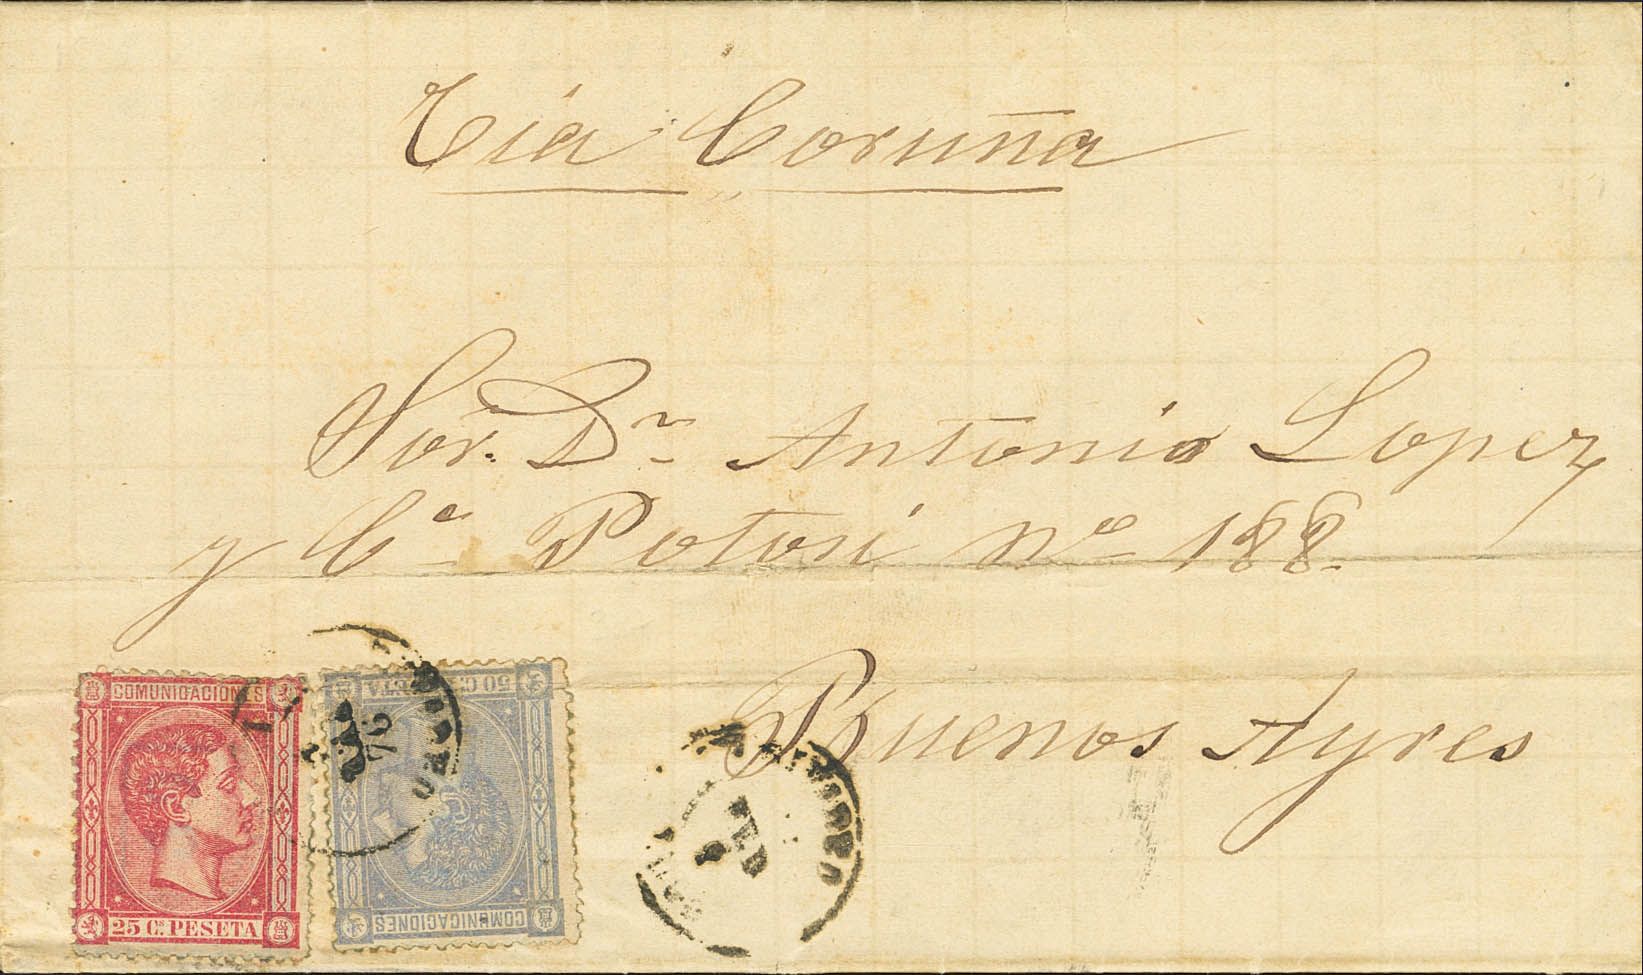 Via Coruña
Sor. Dn Antonio Lopez
y Ca Potosi No 188.
Buenos Ayres
COMUNICACIONES
25 Cs. PESETA
50 C. PESETA
COMUNICACIONES
76
FEB